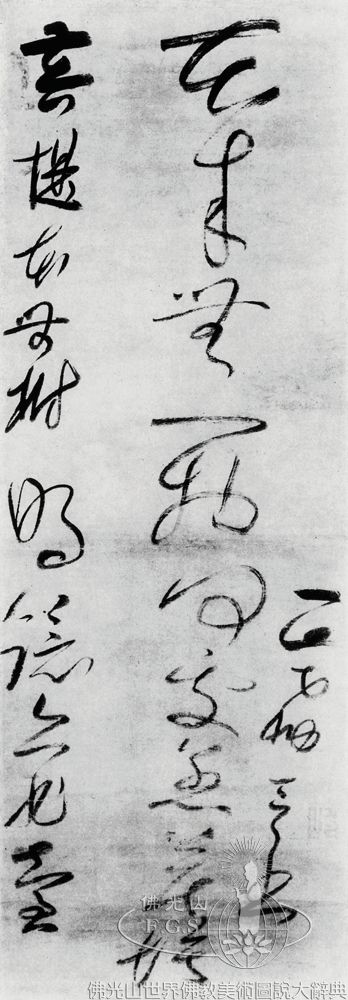 菩提本無樹明鏡亦非臺
本來無一物何處惹塵埃
佛光山
F.G.S.
佛光山世界佛教美術圖說大辭典